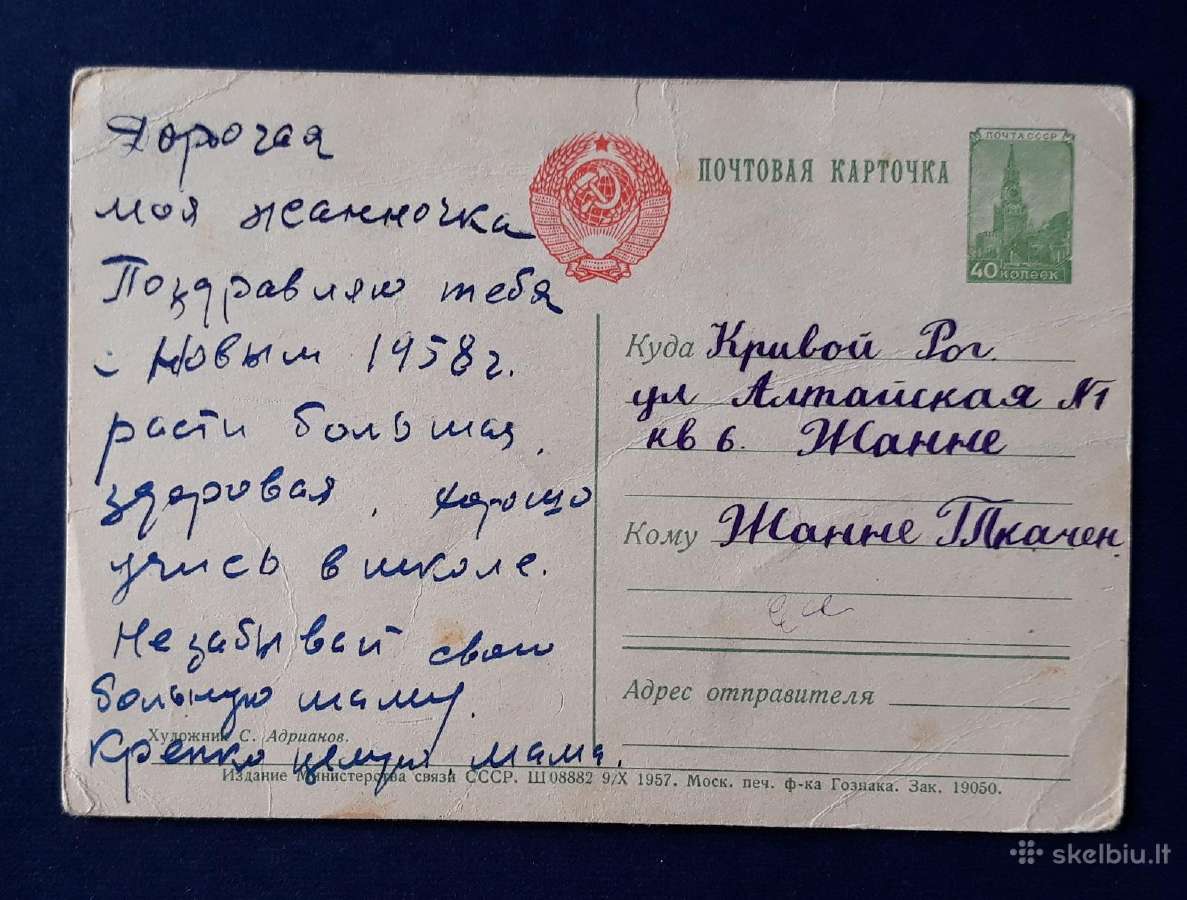 Дорогая
моя жанночка
Поздравляю тебя
с Новым 1958 г.
расти большая,
здоровая, хорошо
учись в школе.
Не забывай свою
больную маму.
Крепко целую, мама.
Художник С. Адрианов.
Издание Министерства связи СССР. Ш 08882 9/X 1957. Моск. печ. ф-ка Гознака. Зак. 19050.
ПОЧТОВАЯ КАРТОЧКА
ПОЧТА СССР
40 КОПЕЕК
Куда Кривой Рог.
ул Алтайская №1
кв 6. Жанне
Кому Жанне Ткачен
Адрес отправителя
skelbiu.lt